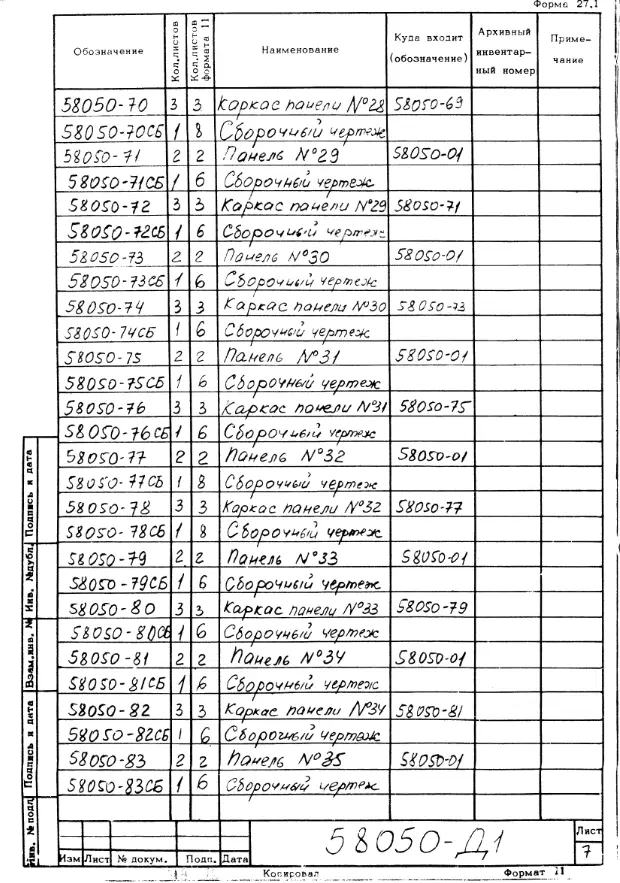 Форма 27.1
Обозначение Кол.листов Кол.листов формата 11 Наименование Куда входит (обозначение) Архивный инвентарный номер Примечание
58050-70 3 3 Каркас панели №28 58050-69
58050-70СБ 1 8 Сборочный чертеж
58050-71 2 2 Панель №29 58050-01
58050-71СБ 1 6 Сборочный чертеж
58050-72 3 3 Каркас панели №29 58050-71
58050-72СБ 1 6 Сборочный чертеж
58050-73 2 2 Панель №30 58050-01
58050-73СБ 1 6 Сборочный чертеж
58050-74 3 3 Каркас панели №30 58050-73
58050-74СБ 1 6 Сборочный чертеж
58050-75 2 2 Панель №31 58050-01
58050-75СБ 1 6 Сборочный чертеж
58050-76 3 3 Каркас панели №31 58050-75
58050-76СБ 1 6 Сборочный чертеж
58050-77 2 2 Панель №32 58050-01
58050-77СБ 1 8 Сборочный чертеж
58050-78 3 3 Каркас панели №32 58050-77
58050-78СБ 1 8 Сборочный чертеж
58050-79 2 2 Панель №33 58050-01
58050-79СБ 1 6 Сборочный чертеж
58050-80 3 3 Каркас панели №33 58050-79
58050-80СБ 1 6 Сборочный чертеж
58050-81 2 2 Панель №34 58050-01
58050-81СБ 1 6 Сборочный чертеж
58050-82 3 3 Каркас панели №34 58050-81
58050-82СБ 1 6 Сборочный чертеж
58050-83 2 2 Панель №35 58050-01
58050-83СБ 1 6 Сборочный чертеж
Подпись и дата
Инв. №дубл.
Взам.инв. №
Подпись и дата
Инв. №подл
58050-Д1
Лист
7
Изм Лист № докум. Подп. Дата
Копировал Формат 11